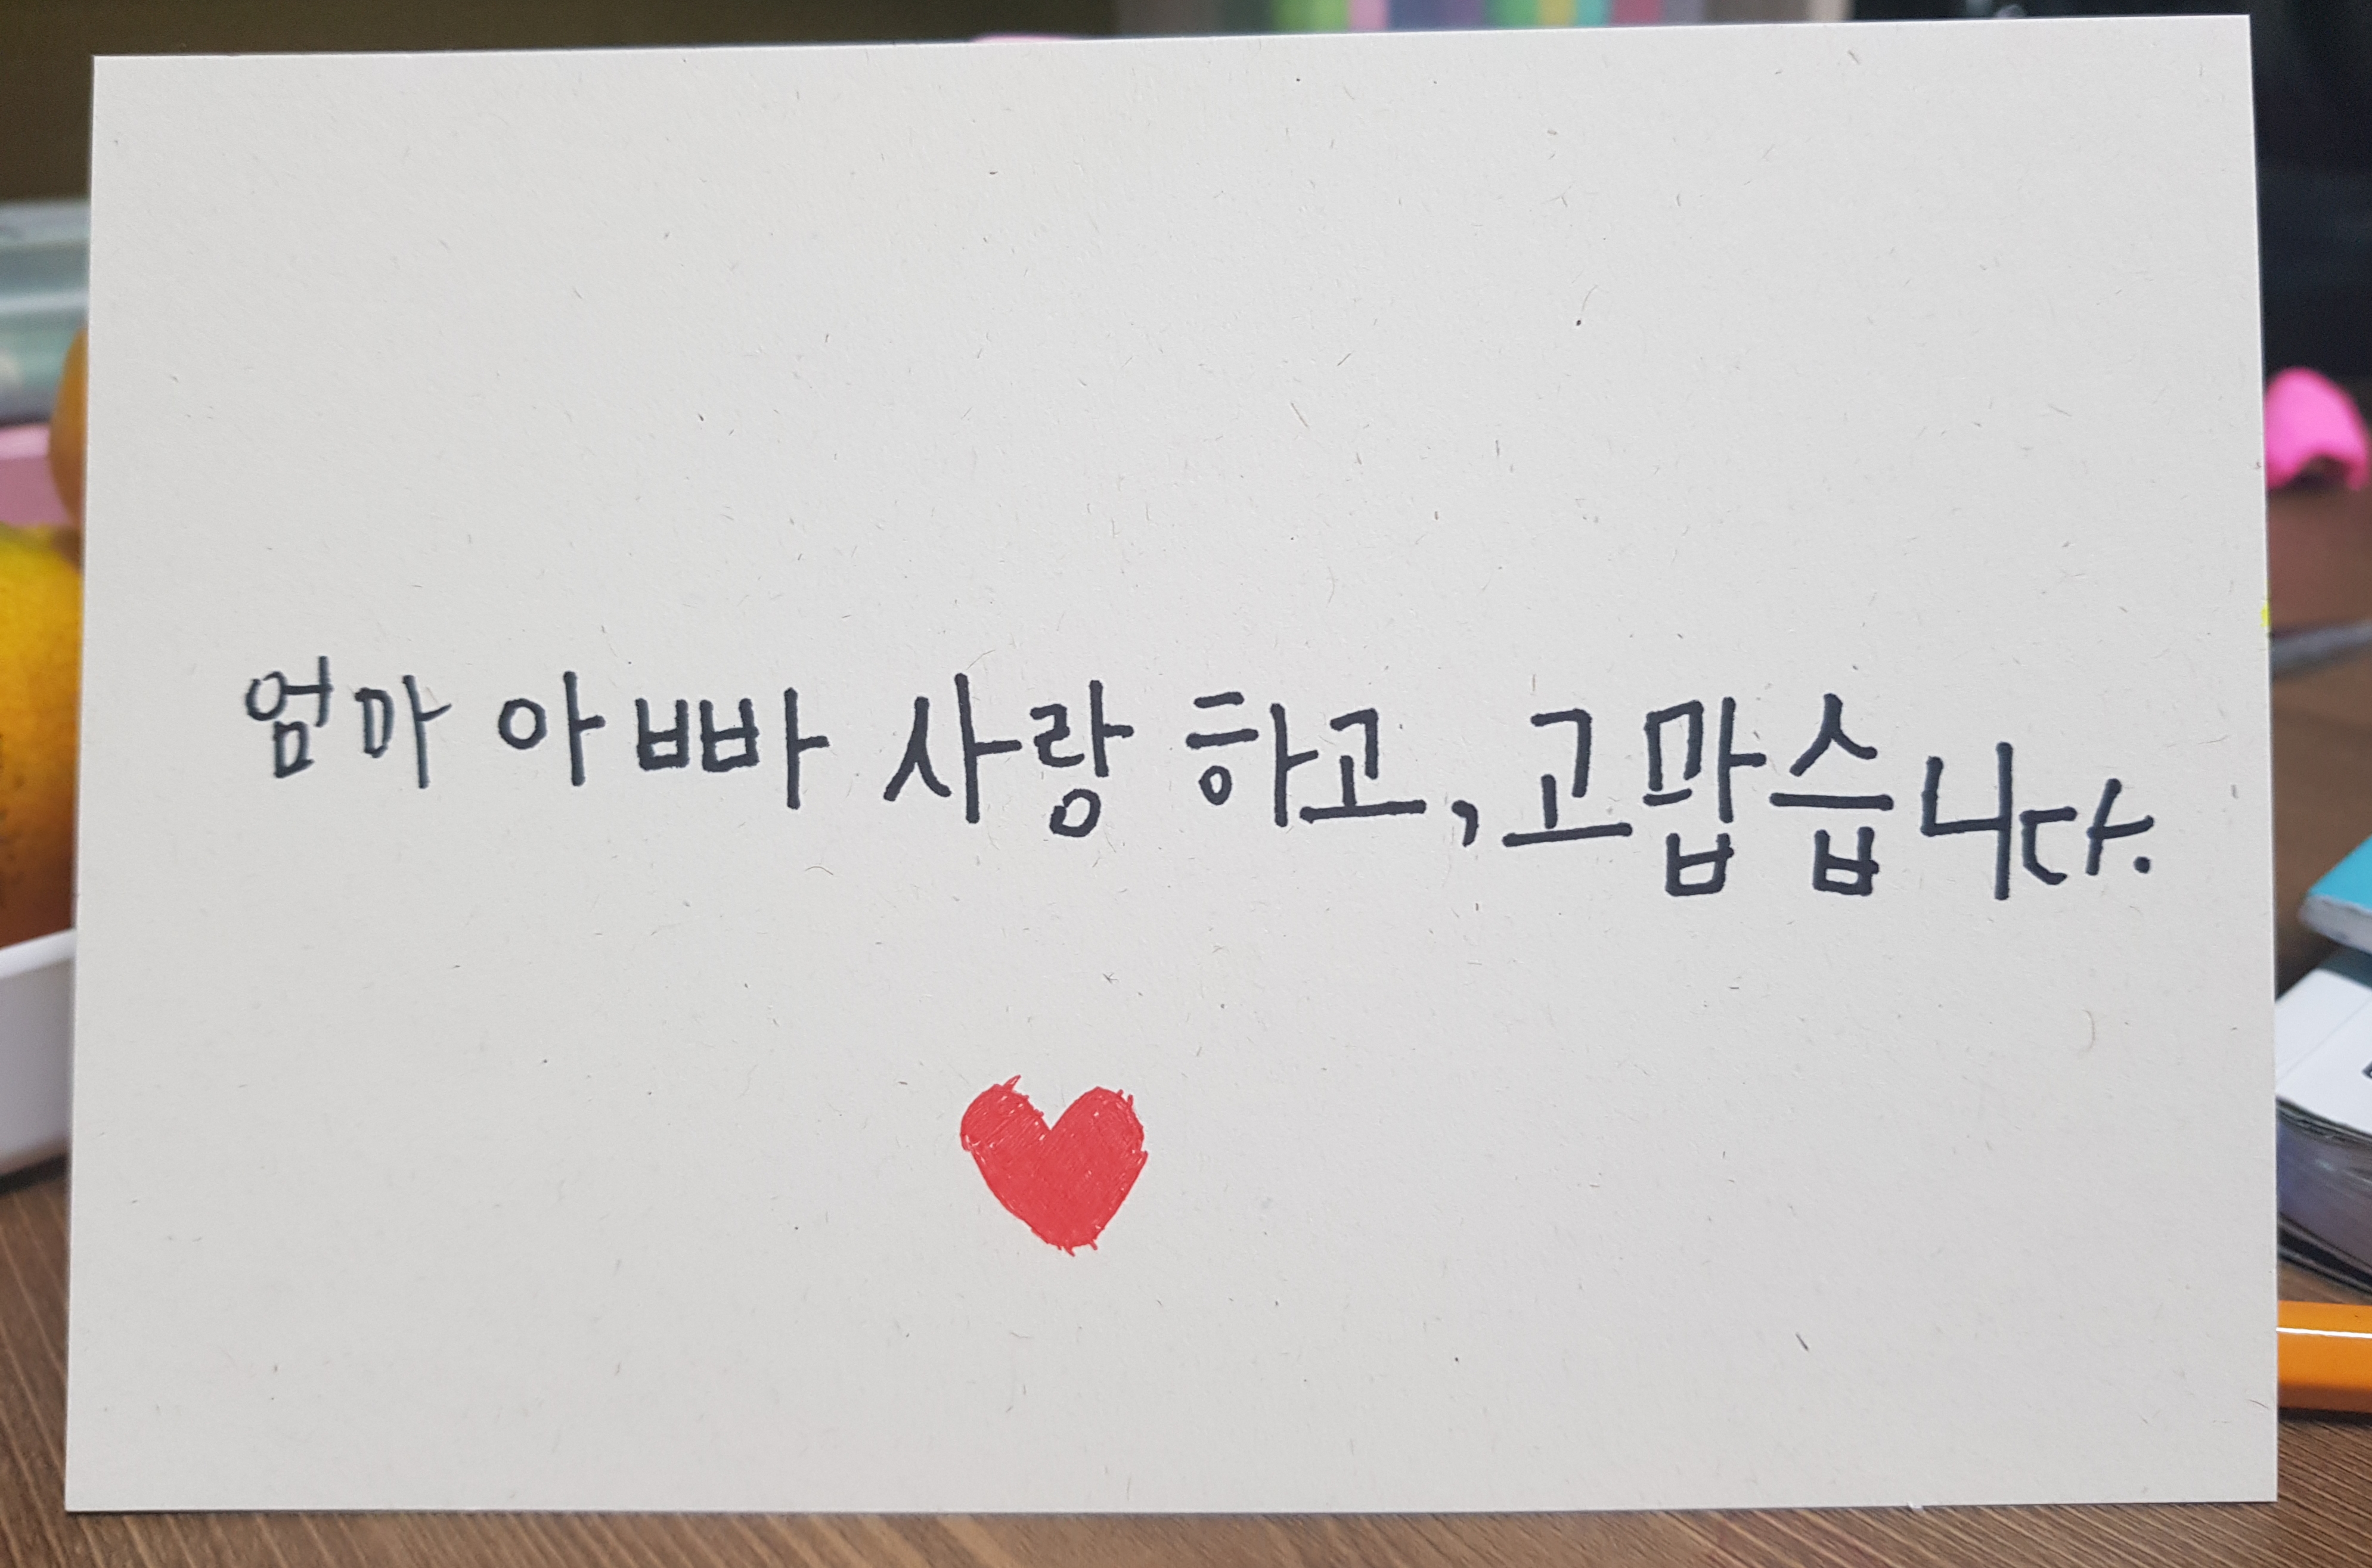 엄마 아빠 사랑 하고, 고맙습니다.